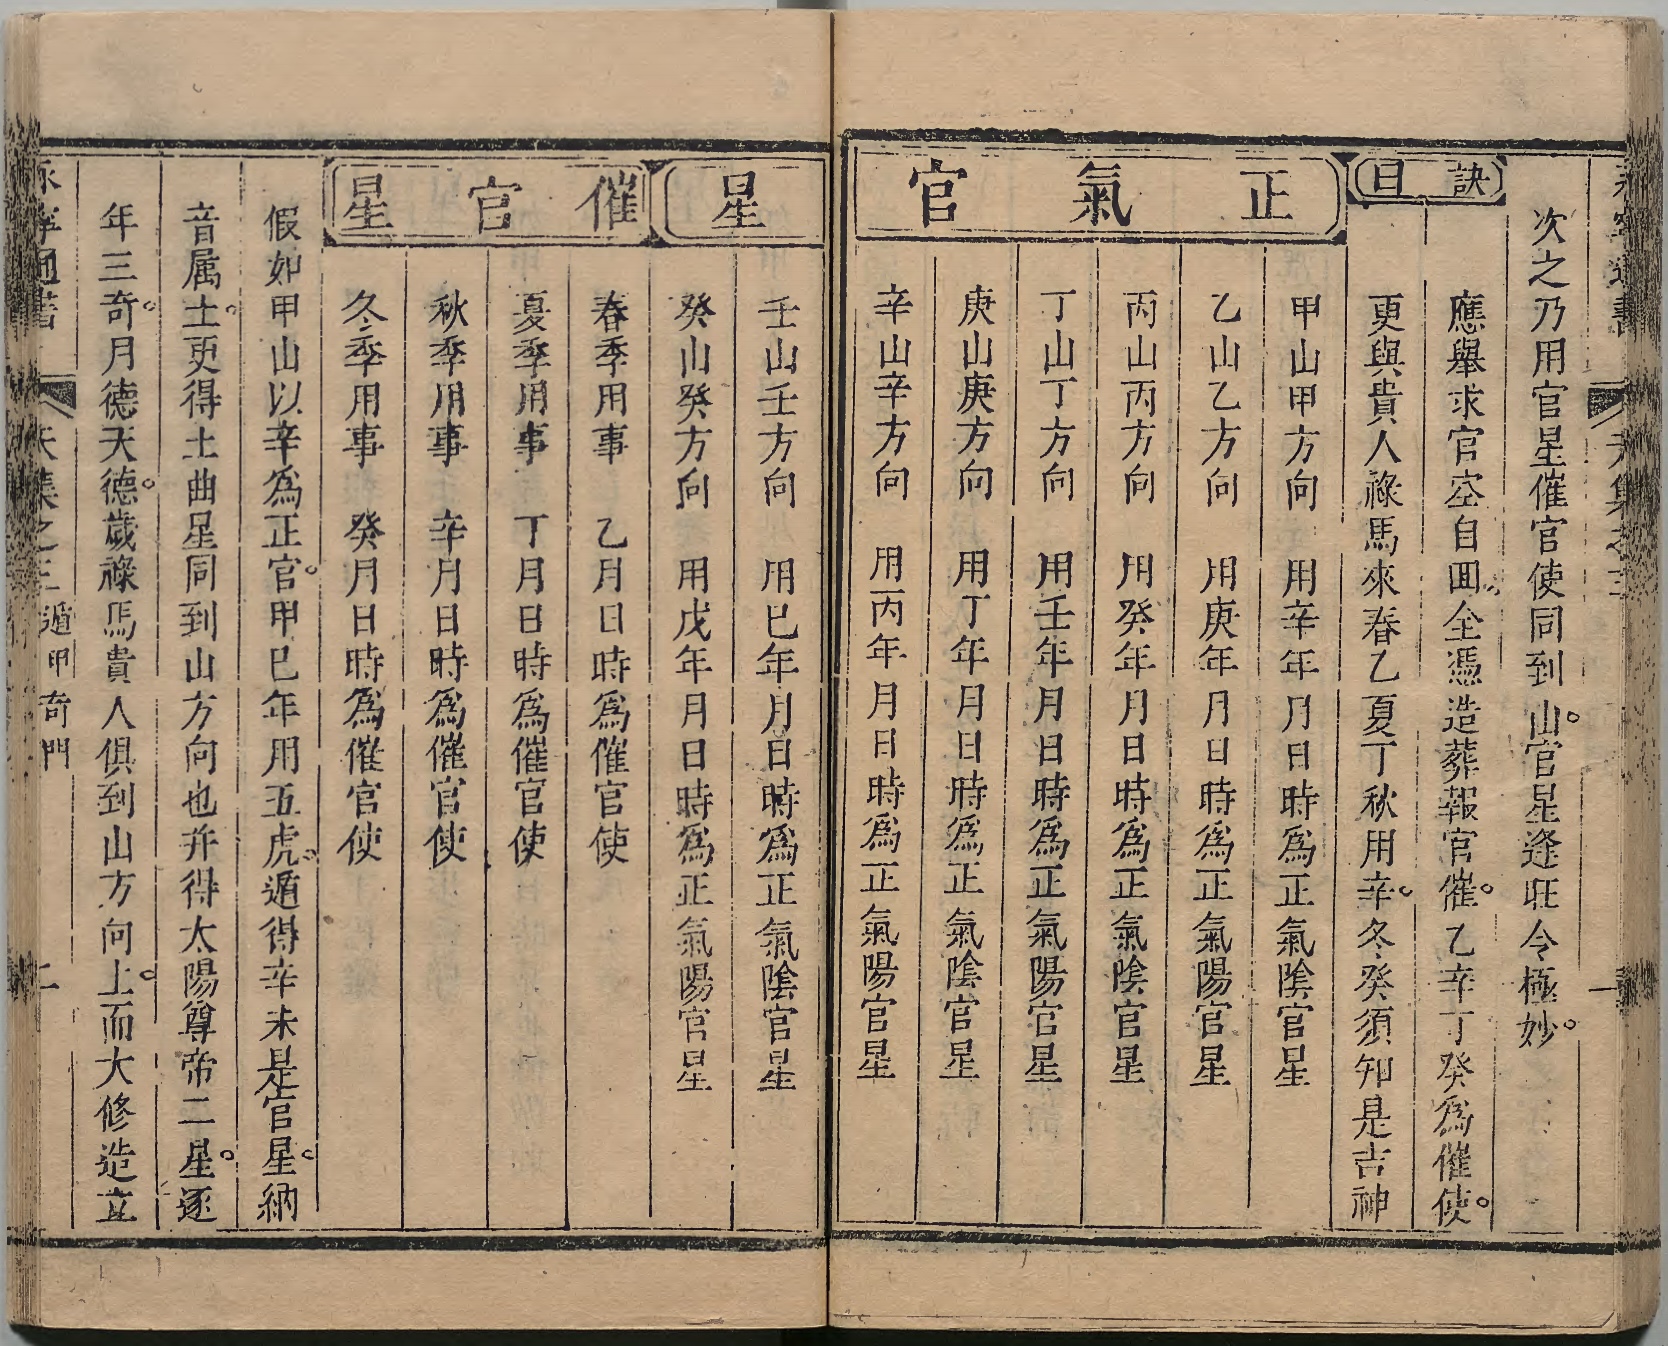 次之乃用官星催官使同到山。官星逢旺令極妙。
訣曰
應舉求官空自囬。全憑造葬報官催。乙辛丁癸為催使。
更與貴人祿馬來春乙夏丁秋用辛。冬癸須知是吉神
正氣官
甲山甲方向 用辛年月日時為正氣陰官星
乙山乙方向 用庚年月日時為正氣陽官星
丙山丙方向 用癸年月日時為正氣陰官星
丁山丁方向 用壬年月日時為正氣陽官星
庚山庚方向 用丁年月日時為正氣陰官星
辛山辛方向 用丙年月日時為正氣陽官星
星
壬山壬方向 用巳年月日時為正氣陰官星
癸山癸方向 用戊年月日時為正氣陽官星
催官星
春季用事 乙月日時為催官使
夏季用事 丁月日時為催官使
秋季用事 辛月日時為催官使
冬季用事 癸月日時為催官使
假如甲山以辛為正官。甲巳年用五虎。遁得辛未是官星。納
音属土。更得土曲星同到山方向也并得太陽尊帝二星。逐
年三奇。月德天德。歲祿馬貴人俱到山方向上。而大修造立
通書 天集之三 遁甲奇門 二